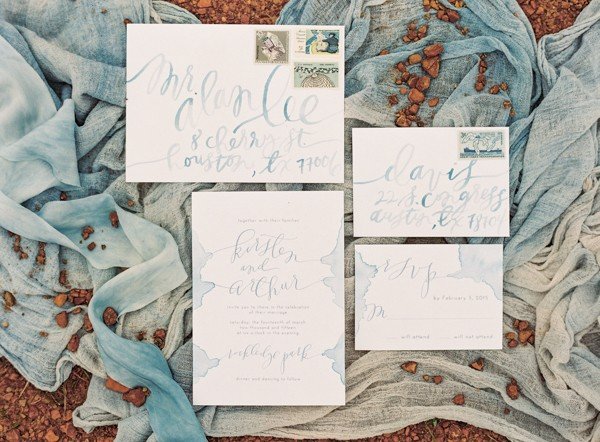 mr.
alan lee
8 cherry st.
houston, tx 77006
davis
22 s. congress
austin, tx 78701
together with their families
kirsten
and
arthur
invite you to share in the celebration
of their marriage
saturday, the fourteenth of march
two-thousand and fifteen
rockledge park
dinner and dancing to follow
rsvp
by February 3, 2015
M
will attend will not attend